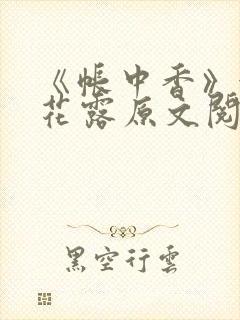 《帐中香》
花露原文阅
黑空行云